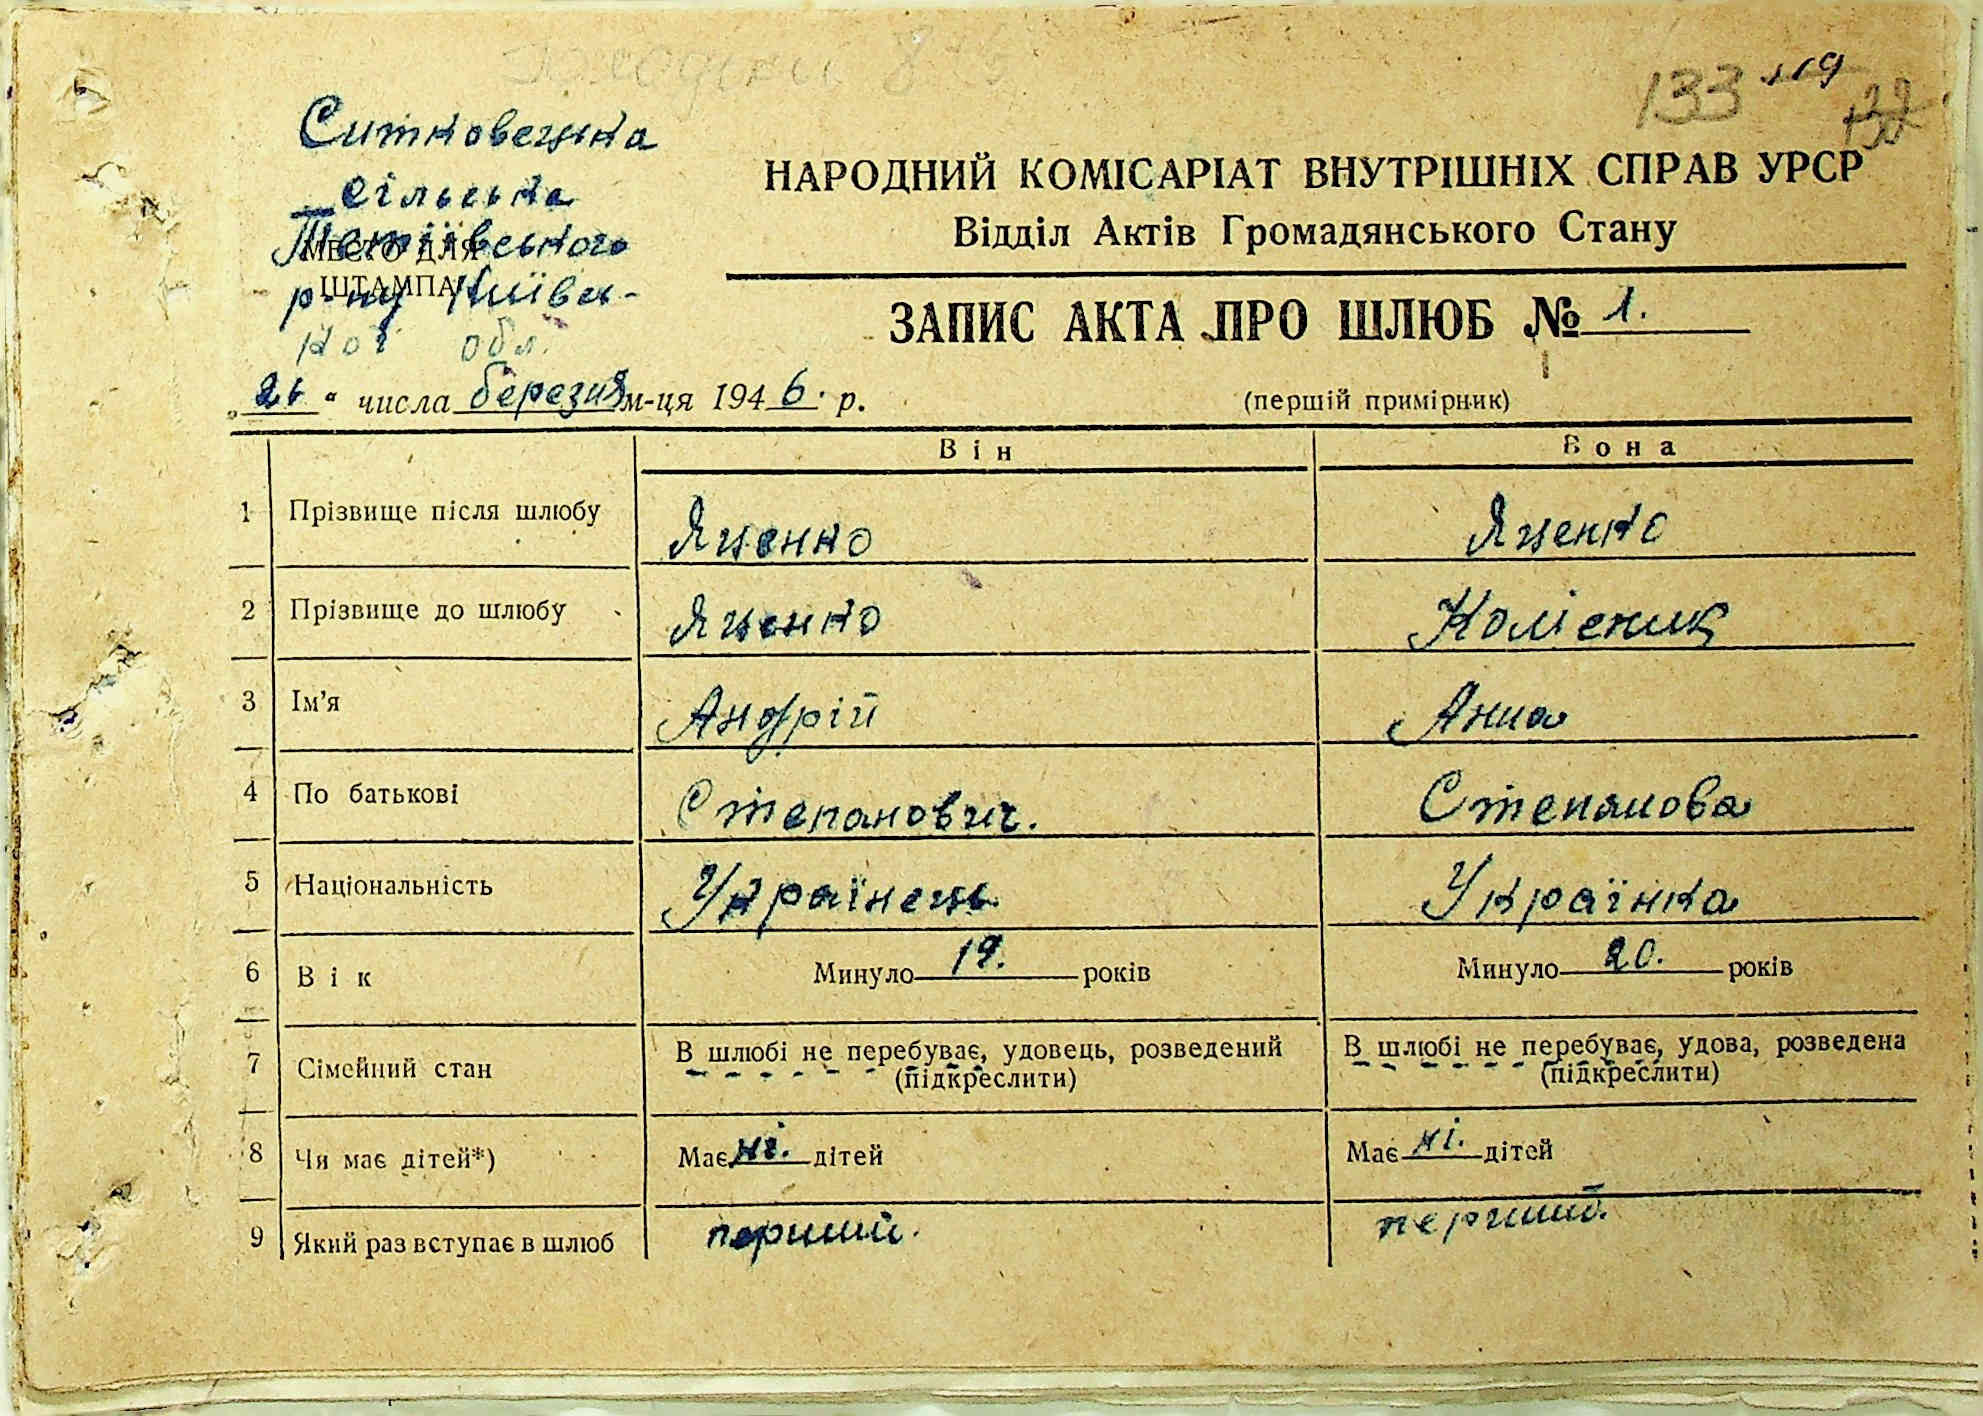 133 119 132
Ситковецька
сільська
Тетіївського
МЕСТО ДЛЯ
ШТАМПА
р-ну Київсь-
кої обл.
НАРОДНИЙ КОМІСАРІАТ ВНУТРІШНІХ СПРАВ УРСР
Відділ Актів Громадянського Стану
ЗАПИС АКТА ПРО ШЛЮБ № 1.
„26“ числа березня м-ця 1946. р.
(перший примірник)
Він Вона
1 Прізвище після шлюбу Яценко Яценко
2 Прізвище до шлюбу Яценко Колісник
3 Ім'я Андрій Анна
4 По батькові Степанович. Степанова
5 Національність Українець Українка
6 Вік Минуло 19. років Минуло 20. років
7 Сімейний стан В шлюбі не перебуває, удовець, розведений В шлюбі не перебуває, удова, розведена
(підкреслити) (підкреслити)
8 Чи має дітей*) Має ні. дітей Має ні. дітей
9 Який раз вступає в шлюб перший. перший.